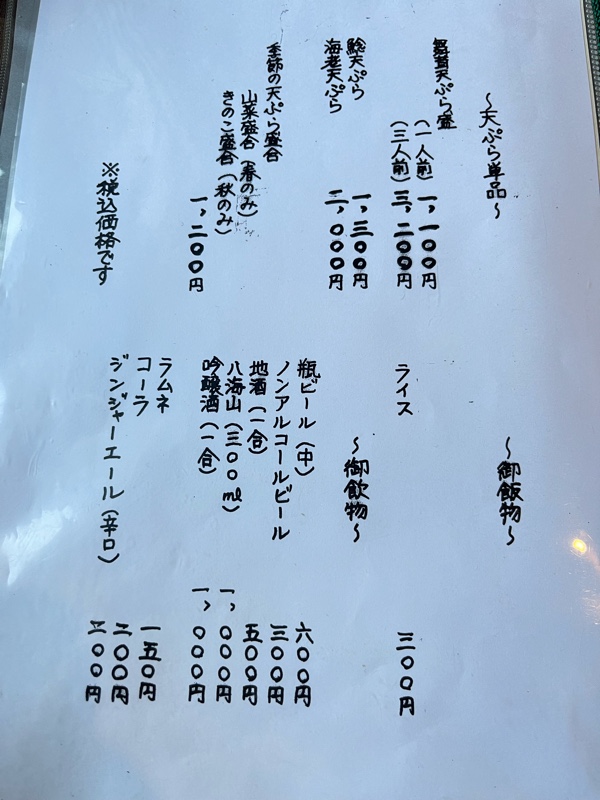 ～天ぷら単品～
舞茸天ぷら盛
（一人前）一、一〇〇円
（三人前）三、二〇〇円
鯰天ぷら 一、三〇〇円
海老天ぷら 二、〇〇〇円
季節の天ぷら盛合
山菜盛合（春のみ）
きのこ盛合（秋のみ）
一、二〇〇円
※税込価格です
～御飯物～
ライス 三〇〇円
～御飲物～
瓶ビール（中） 六〇〇円
ノンアルコールビール 三〇〇円
地酒（一合） 五〇〇円
八海山（三〇〇ml） 一、〇〇〇円
吟醸酒（一合） 一、〇〇〇円
ラムネ 一五〇円
コーラ 二〇〇円
ジンジャーエール（辛口） 二〇〇円